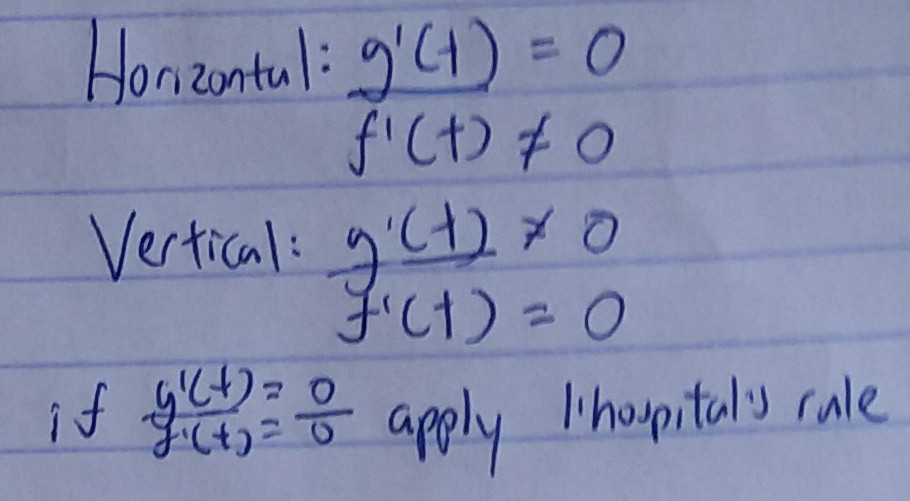 Horizontal: g'(t) = 0
f'(t) ≠ 0
Vertical: g'(t) ≠ 0
f'(t) = 0
if g'(t) = 0
f'(t) = 0 apply l'hospital's rule